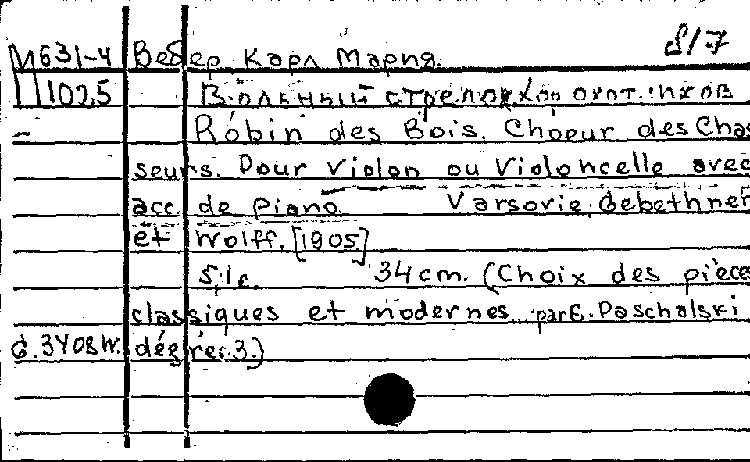 817
М631-4 Вебер Карл Мария.
П1025 Вольный стрелок. Хор охотников
Robin des Bois. Choeur des Chas
seurs. Pour violon ou Violoncelle avec
acc. de piano Varsovie, Gebethner
et Wolff, [1905]
S. 1 c. 34 cm. (Choix des pièces
classiques et modernes par E. Paschalski
degrée 3.)